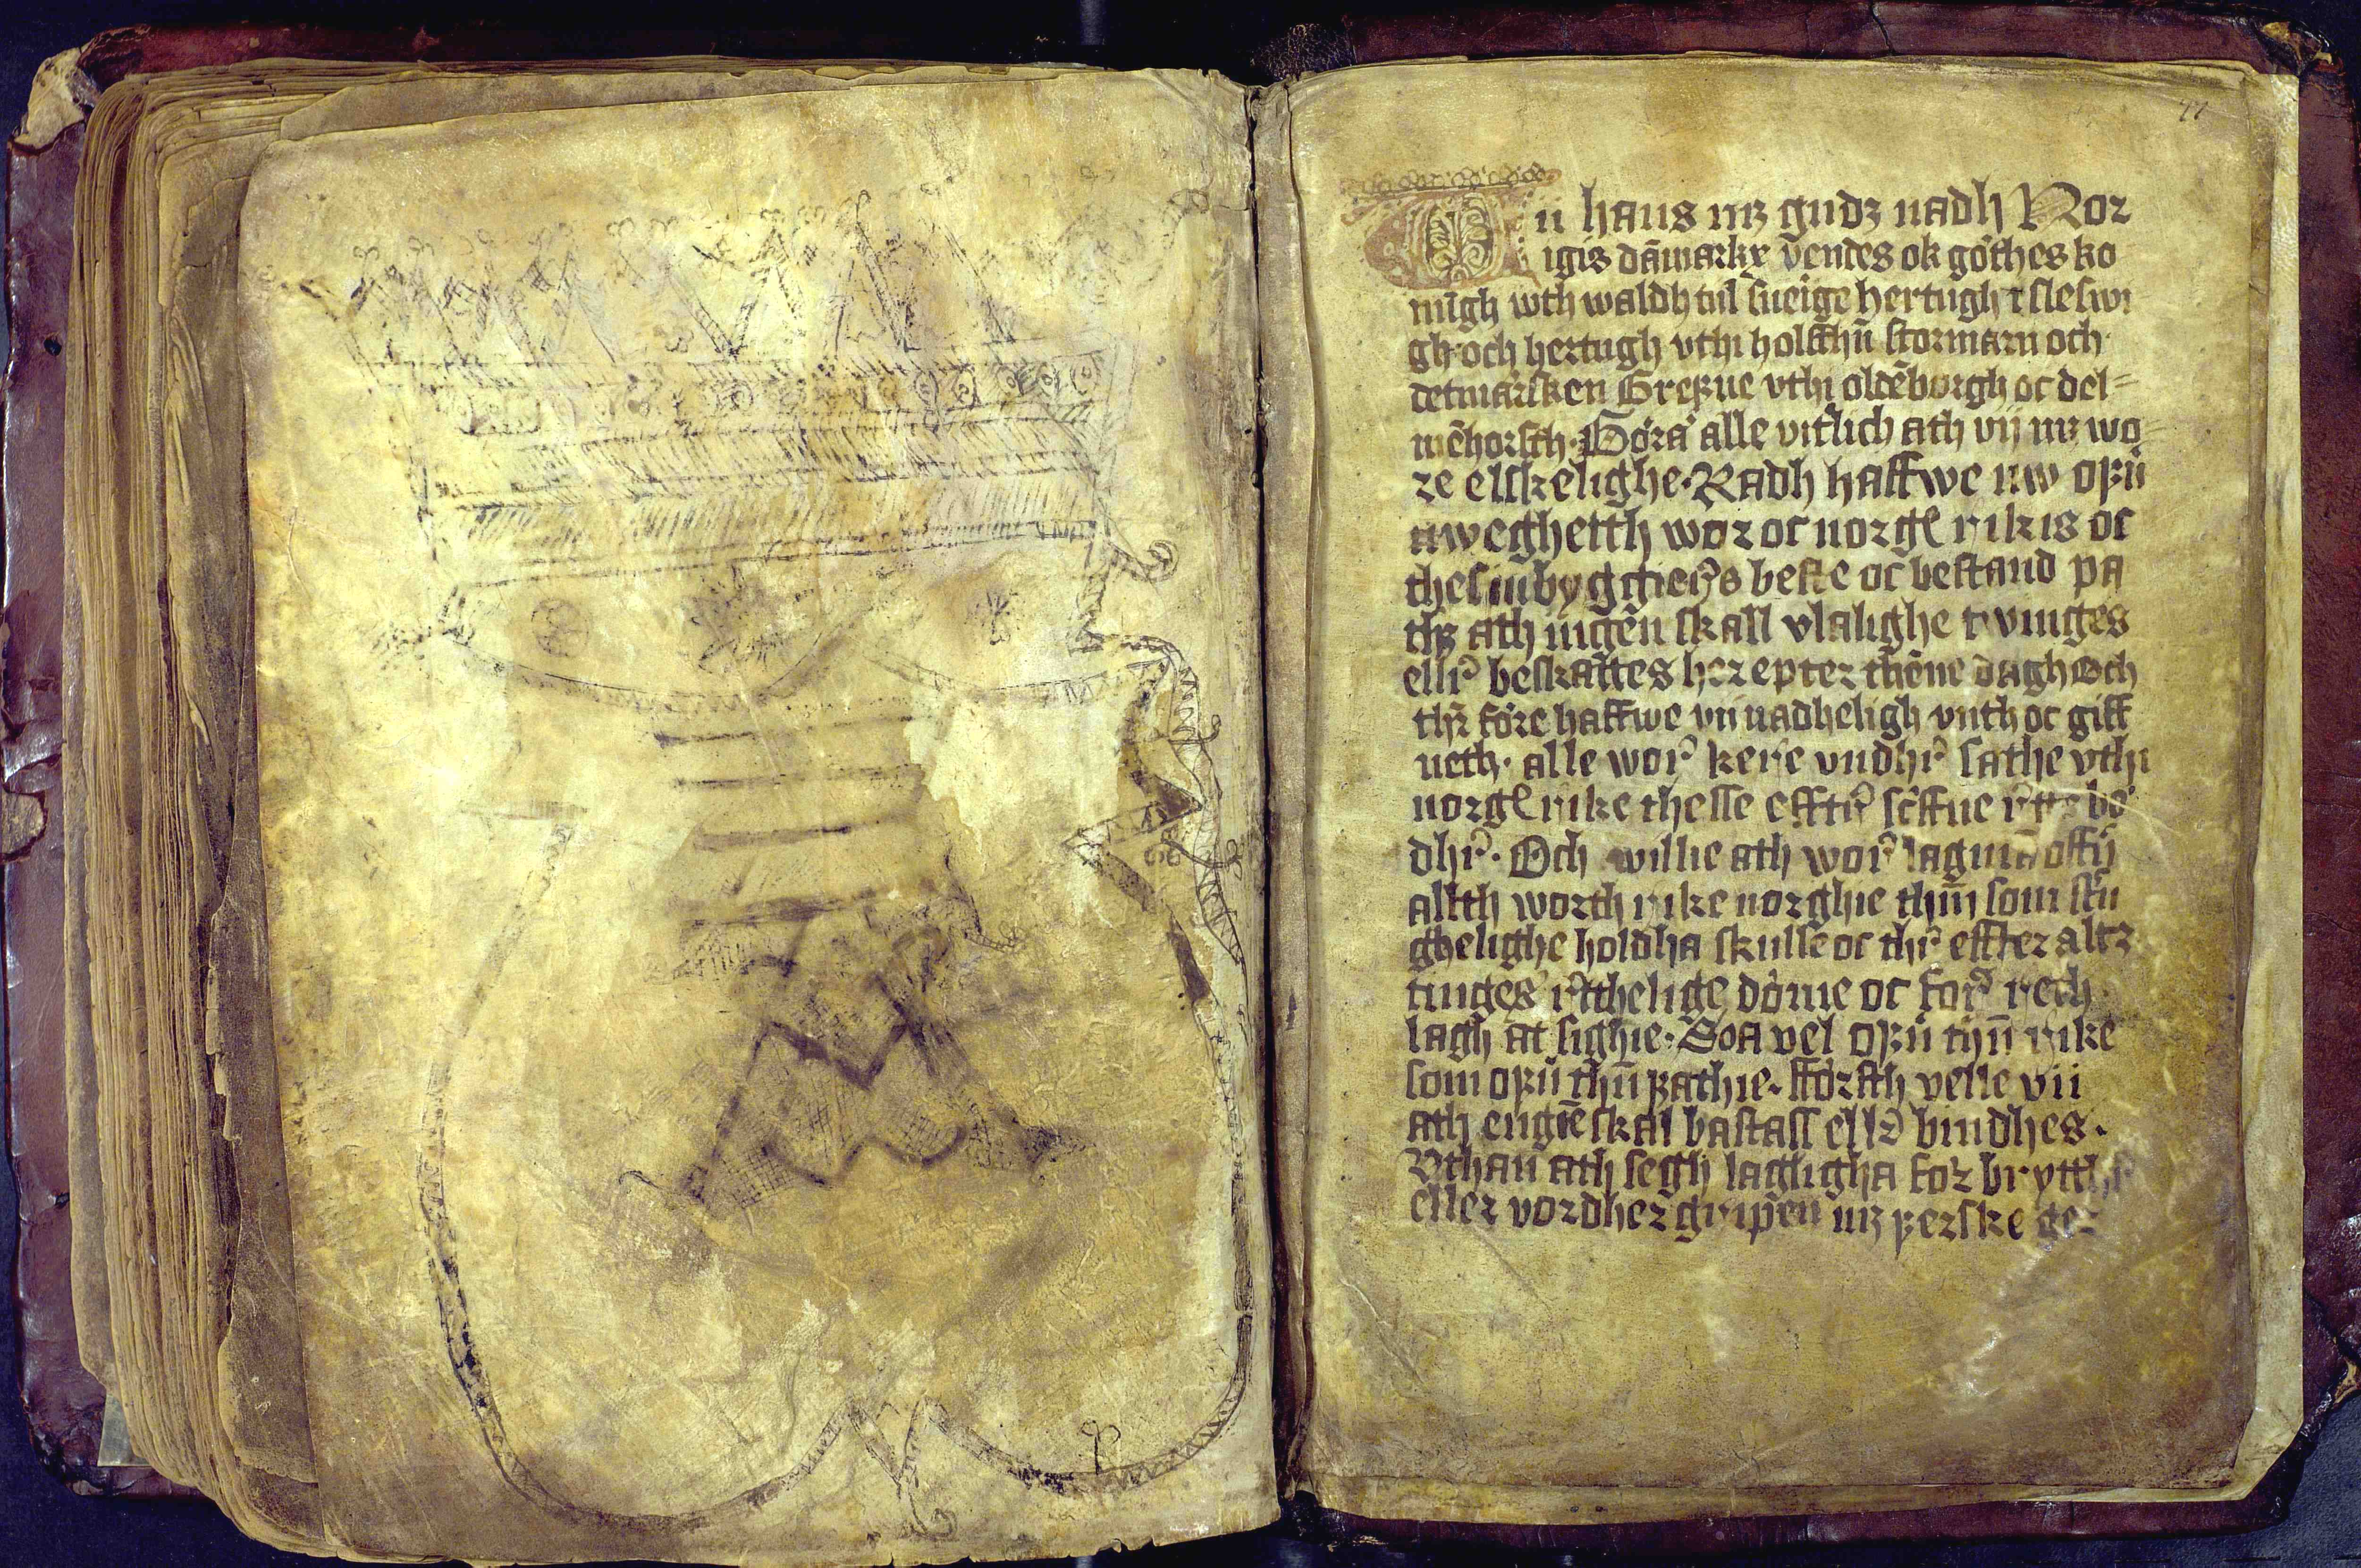 77
hans mz gudz nadh Nor
igis dāmarkx vendes ok gothes ko
nūgh wth waldh til sueige hertugh i sleswi
gh och hertugh vthi holsthn̄ stormarn och
detmarsken Greffue vthi oldēborgh oc del=
mēhorsth. Göra alle vitrlich ath vij mz wo=
re elskelighe. Radh haffwe nw offū
nweghetth wor oc norgl rikis oc
beste oc bestand pa
ath ingen skall vlalighe tvinges
ellr beskattes her epter thēne dagh Och
thr före haffwe vii nadheligh vnth oc giff
ueth. alle wor kere vndhr sathe vthi
norgl rike thesse efftr scffne
dhr. Och willie ath wor lagmā offū
altth worth rike norghie thm̄ som stu
ghelighe holdha skulle oc thr effter altz
tinges rtthelige döme oc for rech
lagh at sighie. Soa vel offū thn̄ rike
som offū thn̄ fathie. fförsth velle vii
ath engiē skal bastass ellr bindhes.
Vthan ath segh laghligha for brytth
eller vordher gripen mz ferske ger